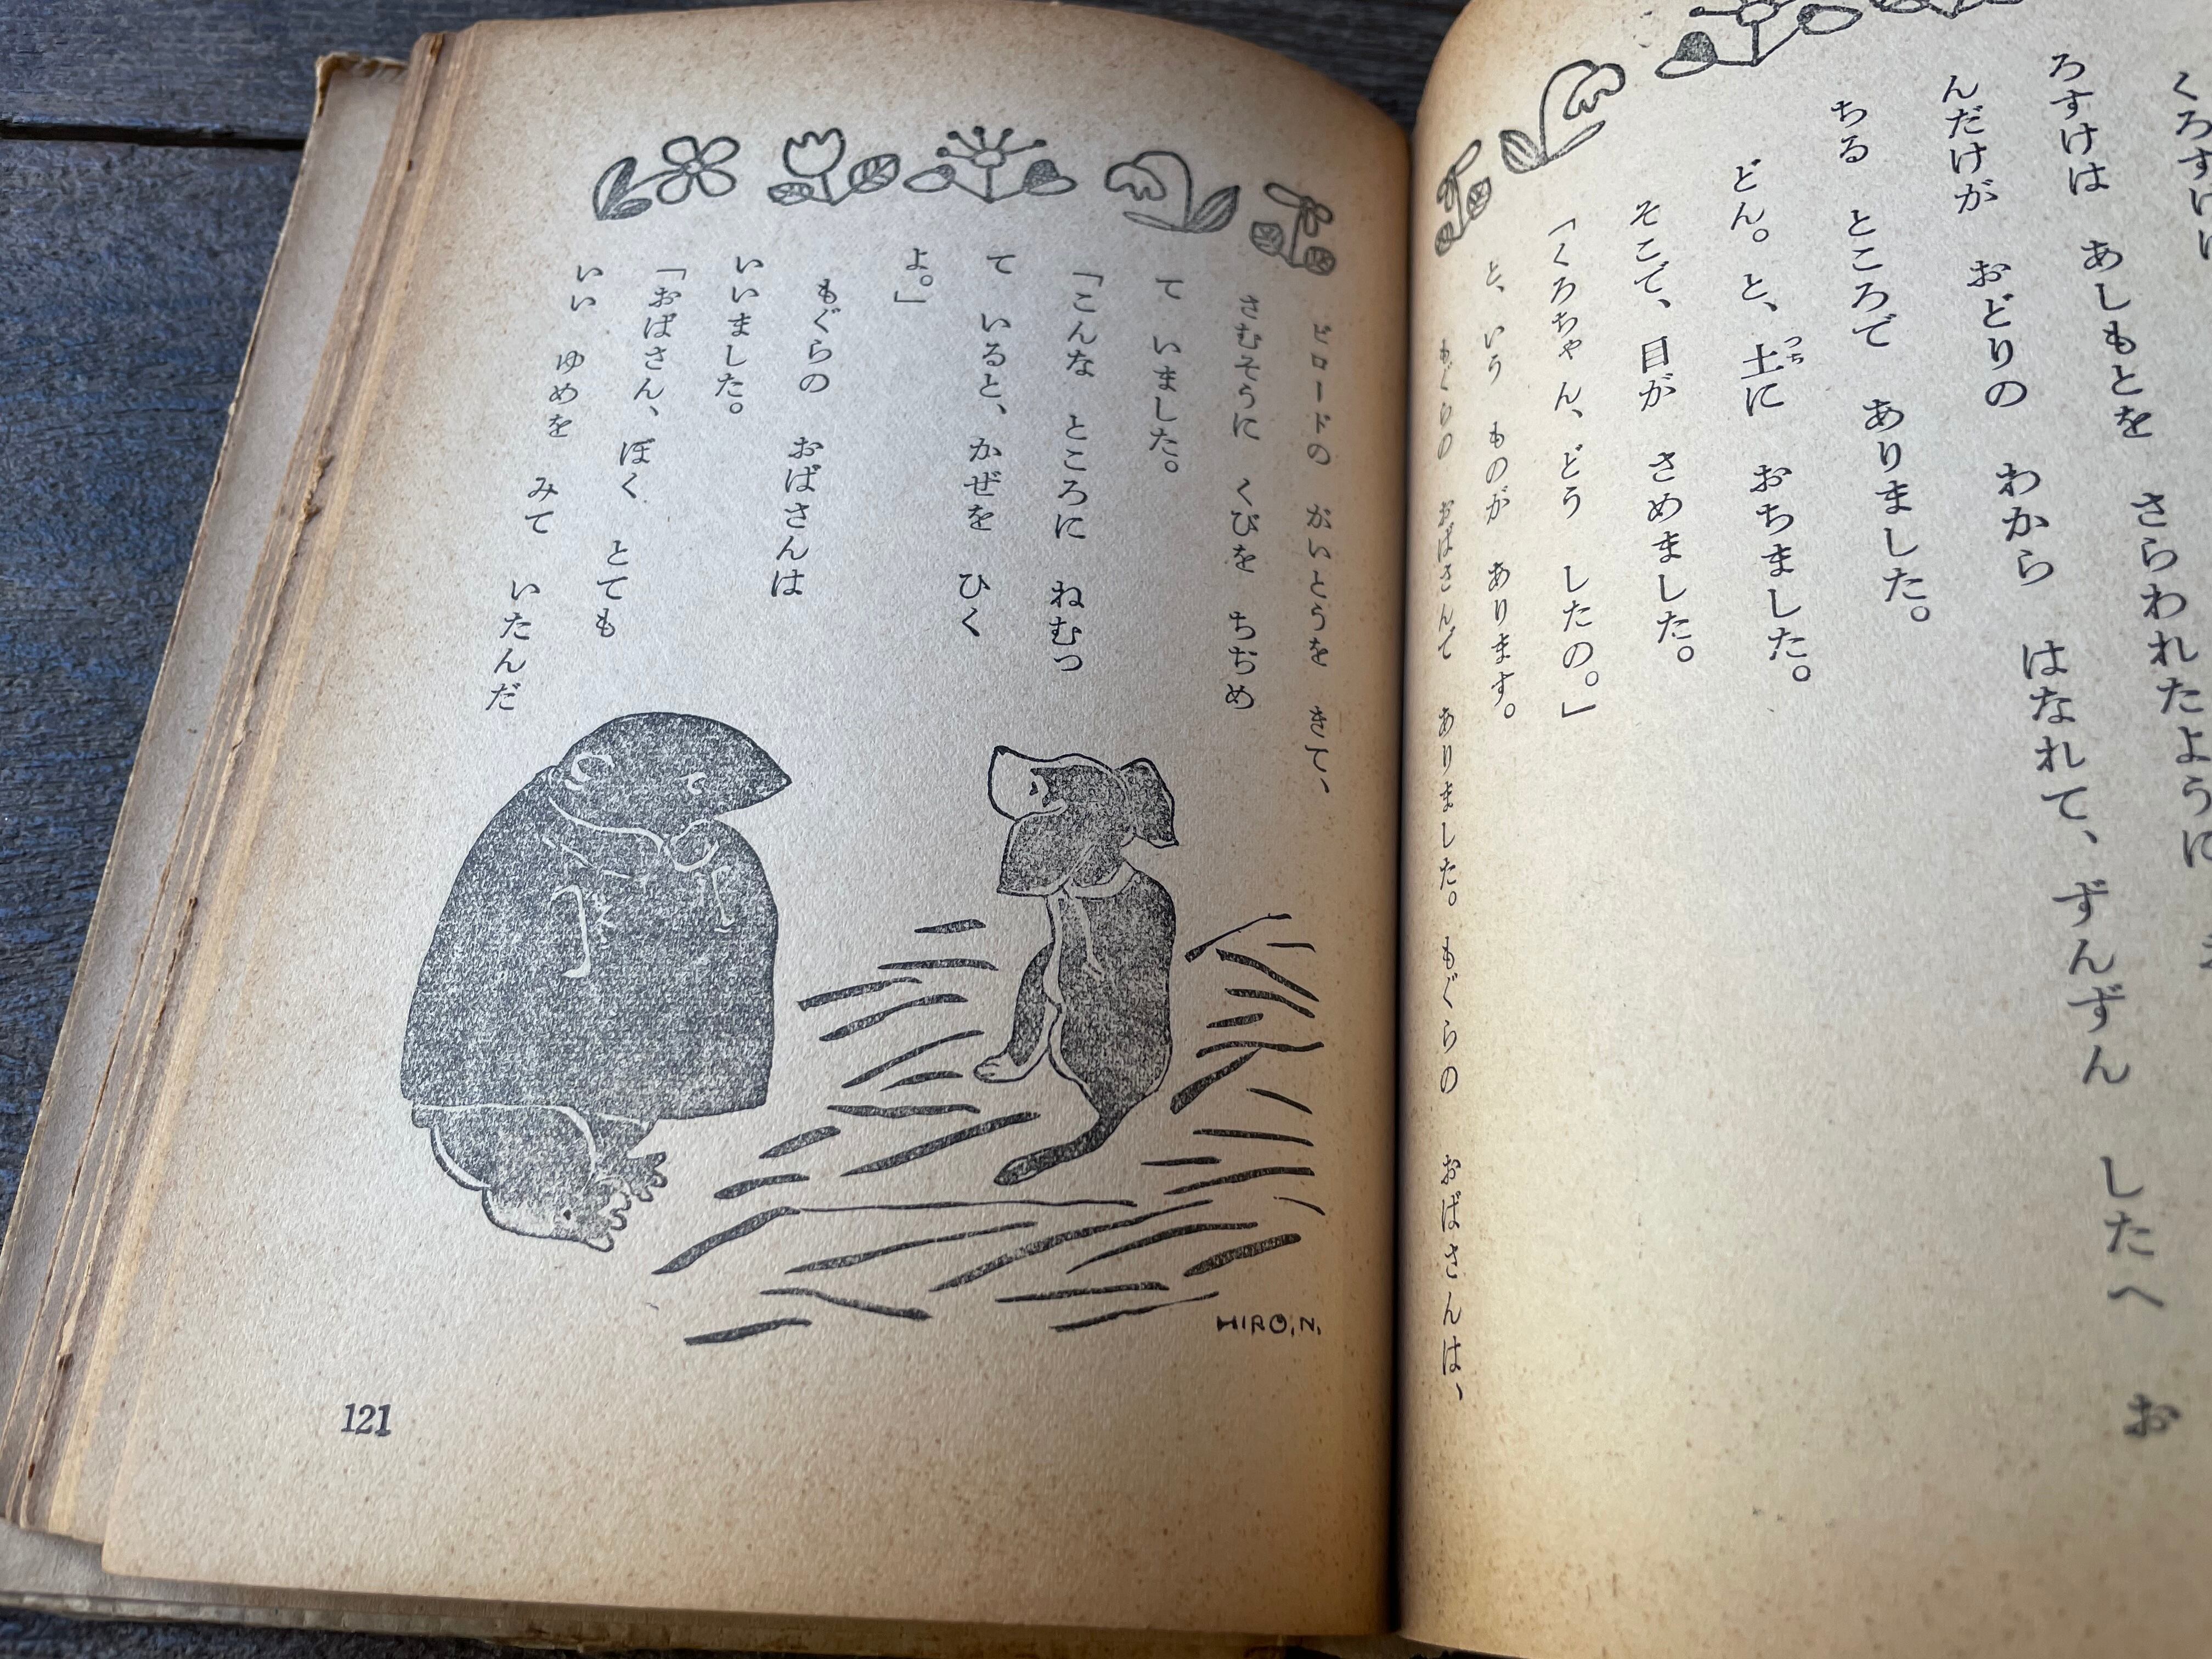 くろすけ
ろすけは あしもとを さらわれたように
んだけが おどりの わから はなれて、ずんずん したへ お
ちる ところで ありました。
どん。と、土に おちました。
つち
そこで、目が さめました。
「くろちゃん、どう したの。」
と、いう ものが あります。
もぐらの おばさんで ありました。もぐらの おばさんは、
ビロードの がいとうを きて、
さむそうに くびを ちぢめ
て いました。
「こんな ところに ねむっ
て いると、かぜを ひく
よ。」
もぐらの おばさんは
いいました。
「おばさん、ぼく とても
いい ゆめを みて いたんだ
HIRO.N.
121